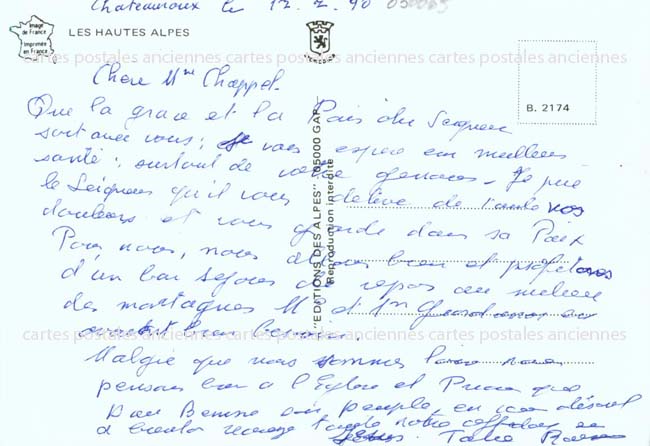 Chateauroux le 12.2.90 050065
Image de France
Imprimée en France
LES HAUTES ALPES
B. 2174
cartes postales anciennes cartes postales anciennes cartes postales anciennes
Chere Mme Chappet.
Que la grace et la Paix du Seigneur
soit avec vous; je vous espere en meilleure
santé; surtout de votre genoux - Je prie
le Seigneur qu'il vous délivre de toute vos
douleurs et vous garde dans sa Paix
Pour nous, nous allons bien et profitons
d'un bon sejour de repos au milieu
des montagnes Mr et
en ont bien besoin.
cartes postales anciennes cartes postales anciennes cartes postales anciennes
Malgré que nous sommes loin nous
pensons bien a l'Eglise et Prions que
Dieu Benisse son peuple, en
recevez toute notre affection en
Jésus.
"EDITIONS DES ALPES" 05000 GAP
Reproduction interdite